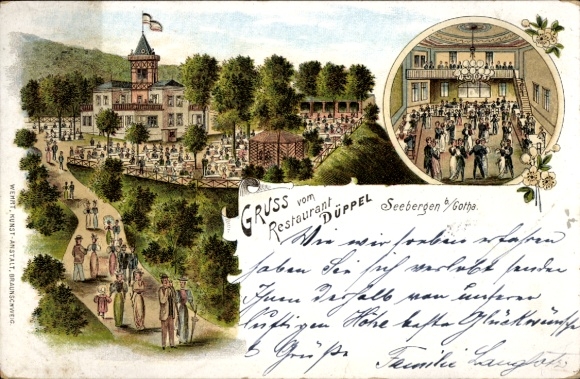 GRUSS vom
Restaurant
DÜPPEL
Seebergen b/Gotha.
Wie wir soeben erfahren
haben Sie sich verlobt senden
Ihnen deshalb von unserer
luftigen Höhe beste Glückwünsche
& Grüße
Familie
WEHRT, KUNST-ANSTALT, BRAUNSCHWEIG.